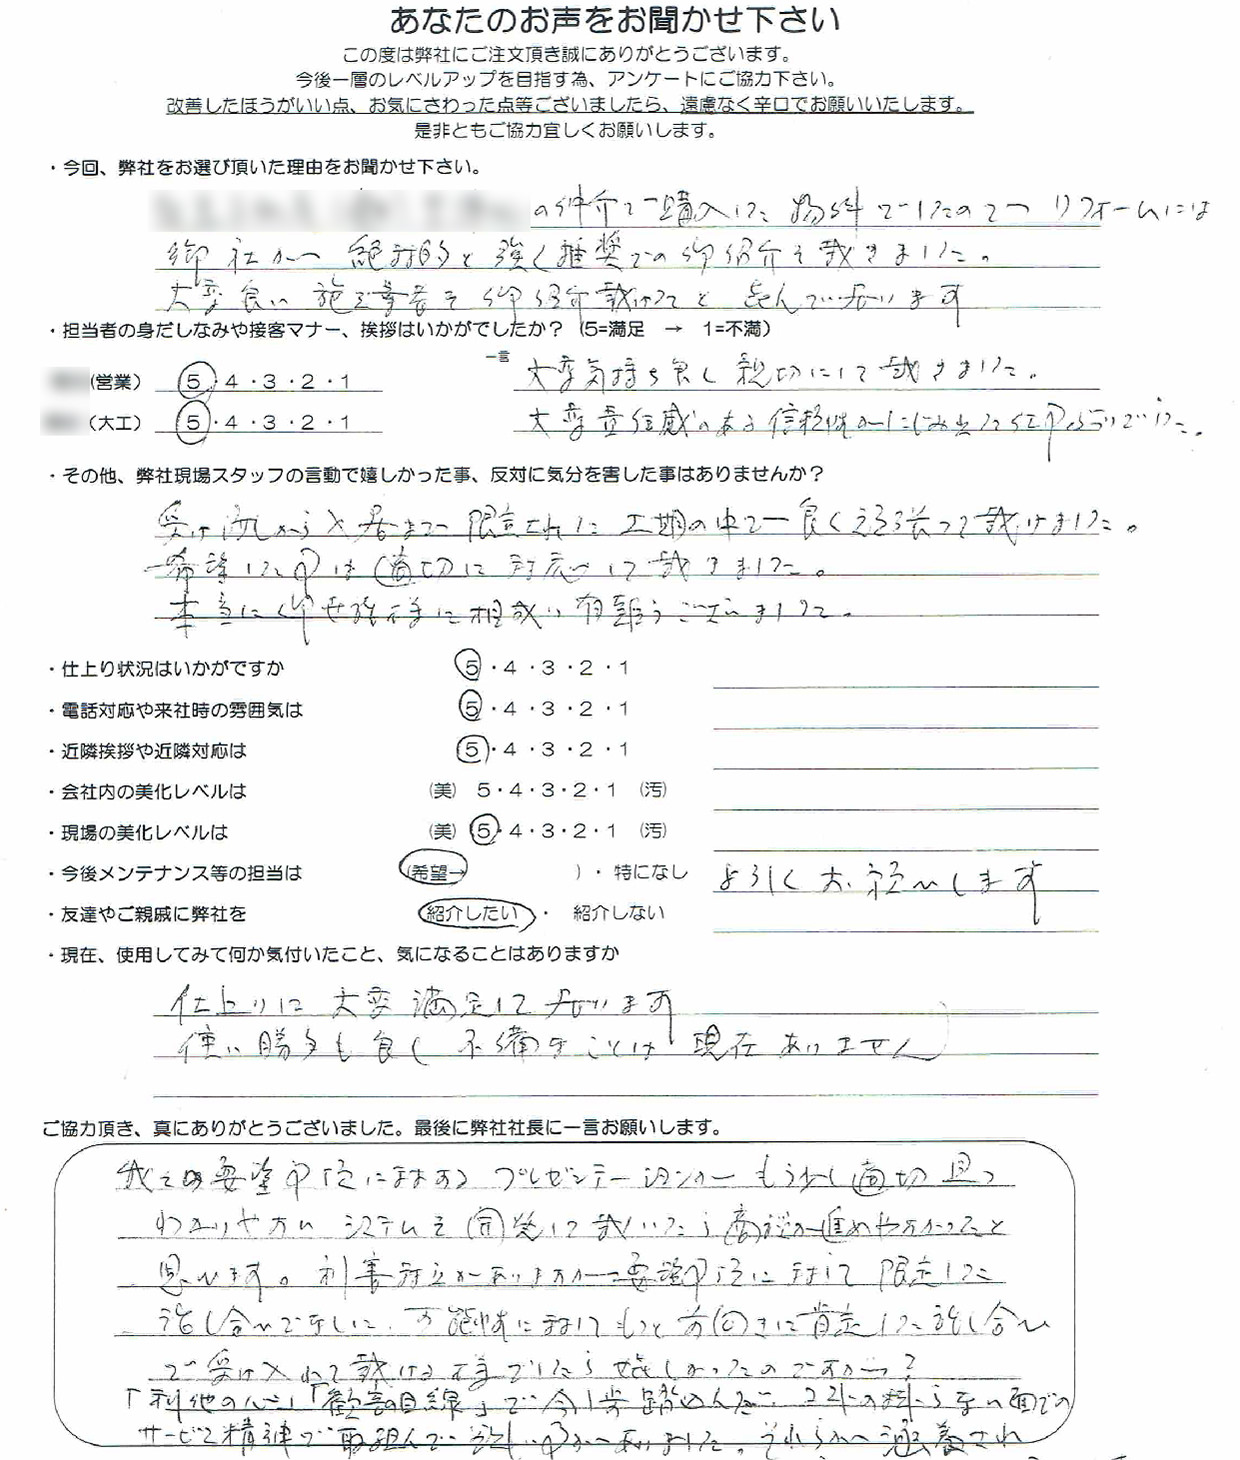 あなたのお声をお聞かせ下さい
この度は弊社にご注文頂き誠にありがとうございます。
今後一層のレベルアップを目指す為、アンケートにご協力下さい。
改善したほうがいい点、お気にさわった点等ございましたら、遠慮なく辛口でお願いいたします。
是非ともご協力宜しくお願いします。
・今回、弊社をお選び頂いた理由をお聞かせ下さい。
の仲介で購入した物件でしたので リフォームには
御社が絶対的と強く推奨での御紹介を戴きました。
大変良い施工業者を御紹介戴けたと喜んで居ります
・担当者の身だしなみや接客マナー、挨拶はいかがでしたか？（5=満足 → 1=不満）
(営業) 5・4・3・2・1 一言 大変気持ち良く親切にして戴きました。
(大工) 5・4・3・2・1 大変責任感のある信頼性がにじみ出た
・その他、弊社現場スタッフの言動で嬉しかった事、反対に気分を害した事はありませんか？
受け渡しから入居まで限定された工期の中で良く頑張って戴けました。
希望した中は適切に対応して戴きました。
本当に御世話様に相成り有難うございました。
・仕上り状況はいかがですか 5・4・3・2・1
・電話対応や来社時の雰囲気は 5・4・3・2・1
・近隣挨拶や近隣対応は 5・4・3・2・1
・会社内の美化レベルは (美) 5・4・3・2・1 (汚)
・現場の美化レベルは (美) 5・4・3・2・1 (汚)
・今後メンテナンス等の担当は (希望→ )・特になし よろしくお願いします
・友達やご親戚に弊社を 紹介したい ・ 紹介しない
・現在、使用してみて何か気付いたこと、気になることはありますか
仕上りに大変満足して居ります
使い勝手も良く不備なことは現在ありません
ご協力頂き、真にありがとうございました。最後に弊社社長に一言お願いします。
我々の要望 に対する プレゼンテーションが もう少し適切且つ
わかりやすい システムを開発して戴いたら商談が進めやすかったと
思います。利害対立がありますが要望 に対して 限定した
話し合いでなしに、可能性に対してもっと前向きに肯定した話し合い
で受け入れて戴ける様でしたら嬉しかったのですが？
「利他の心」「顧客目線」で今1歩踏込んだ コストの掛らない面での
サービス精神で取組んで欲しい がありました。それらが涵養され